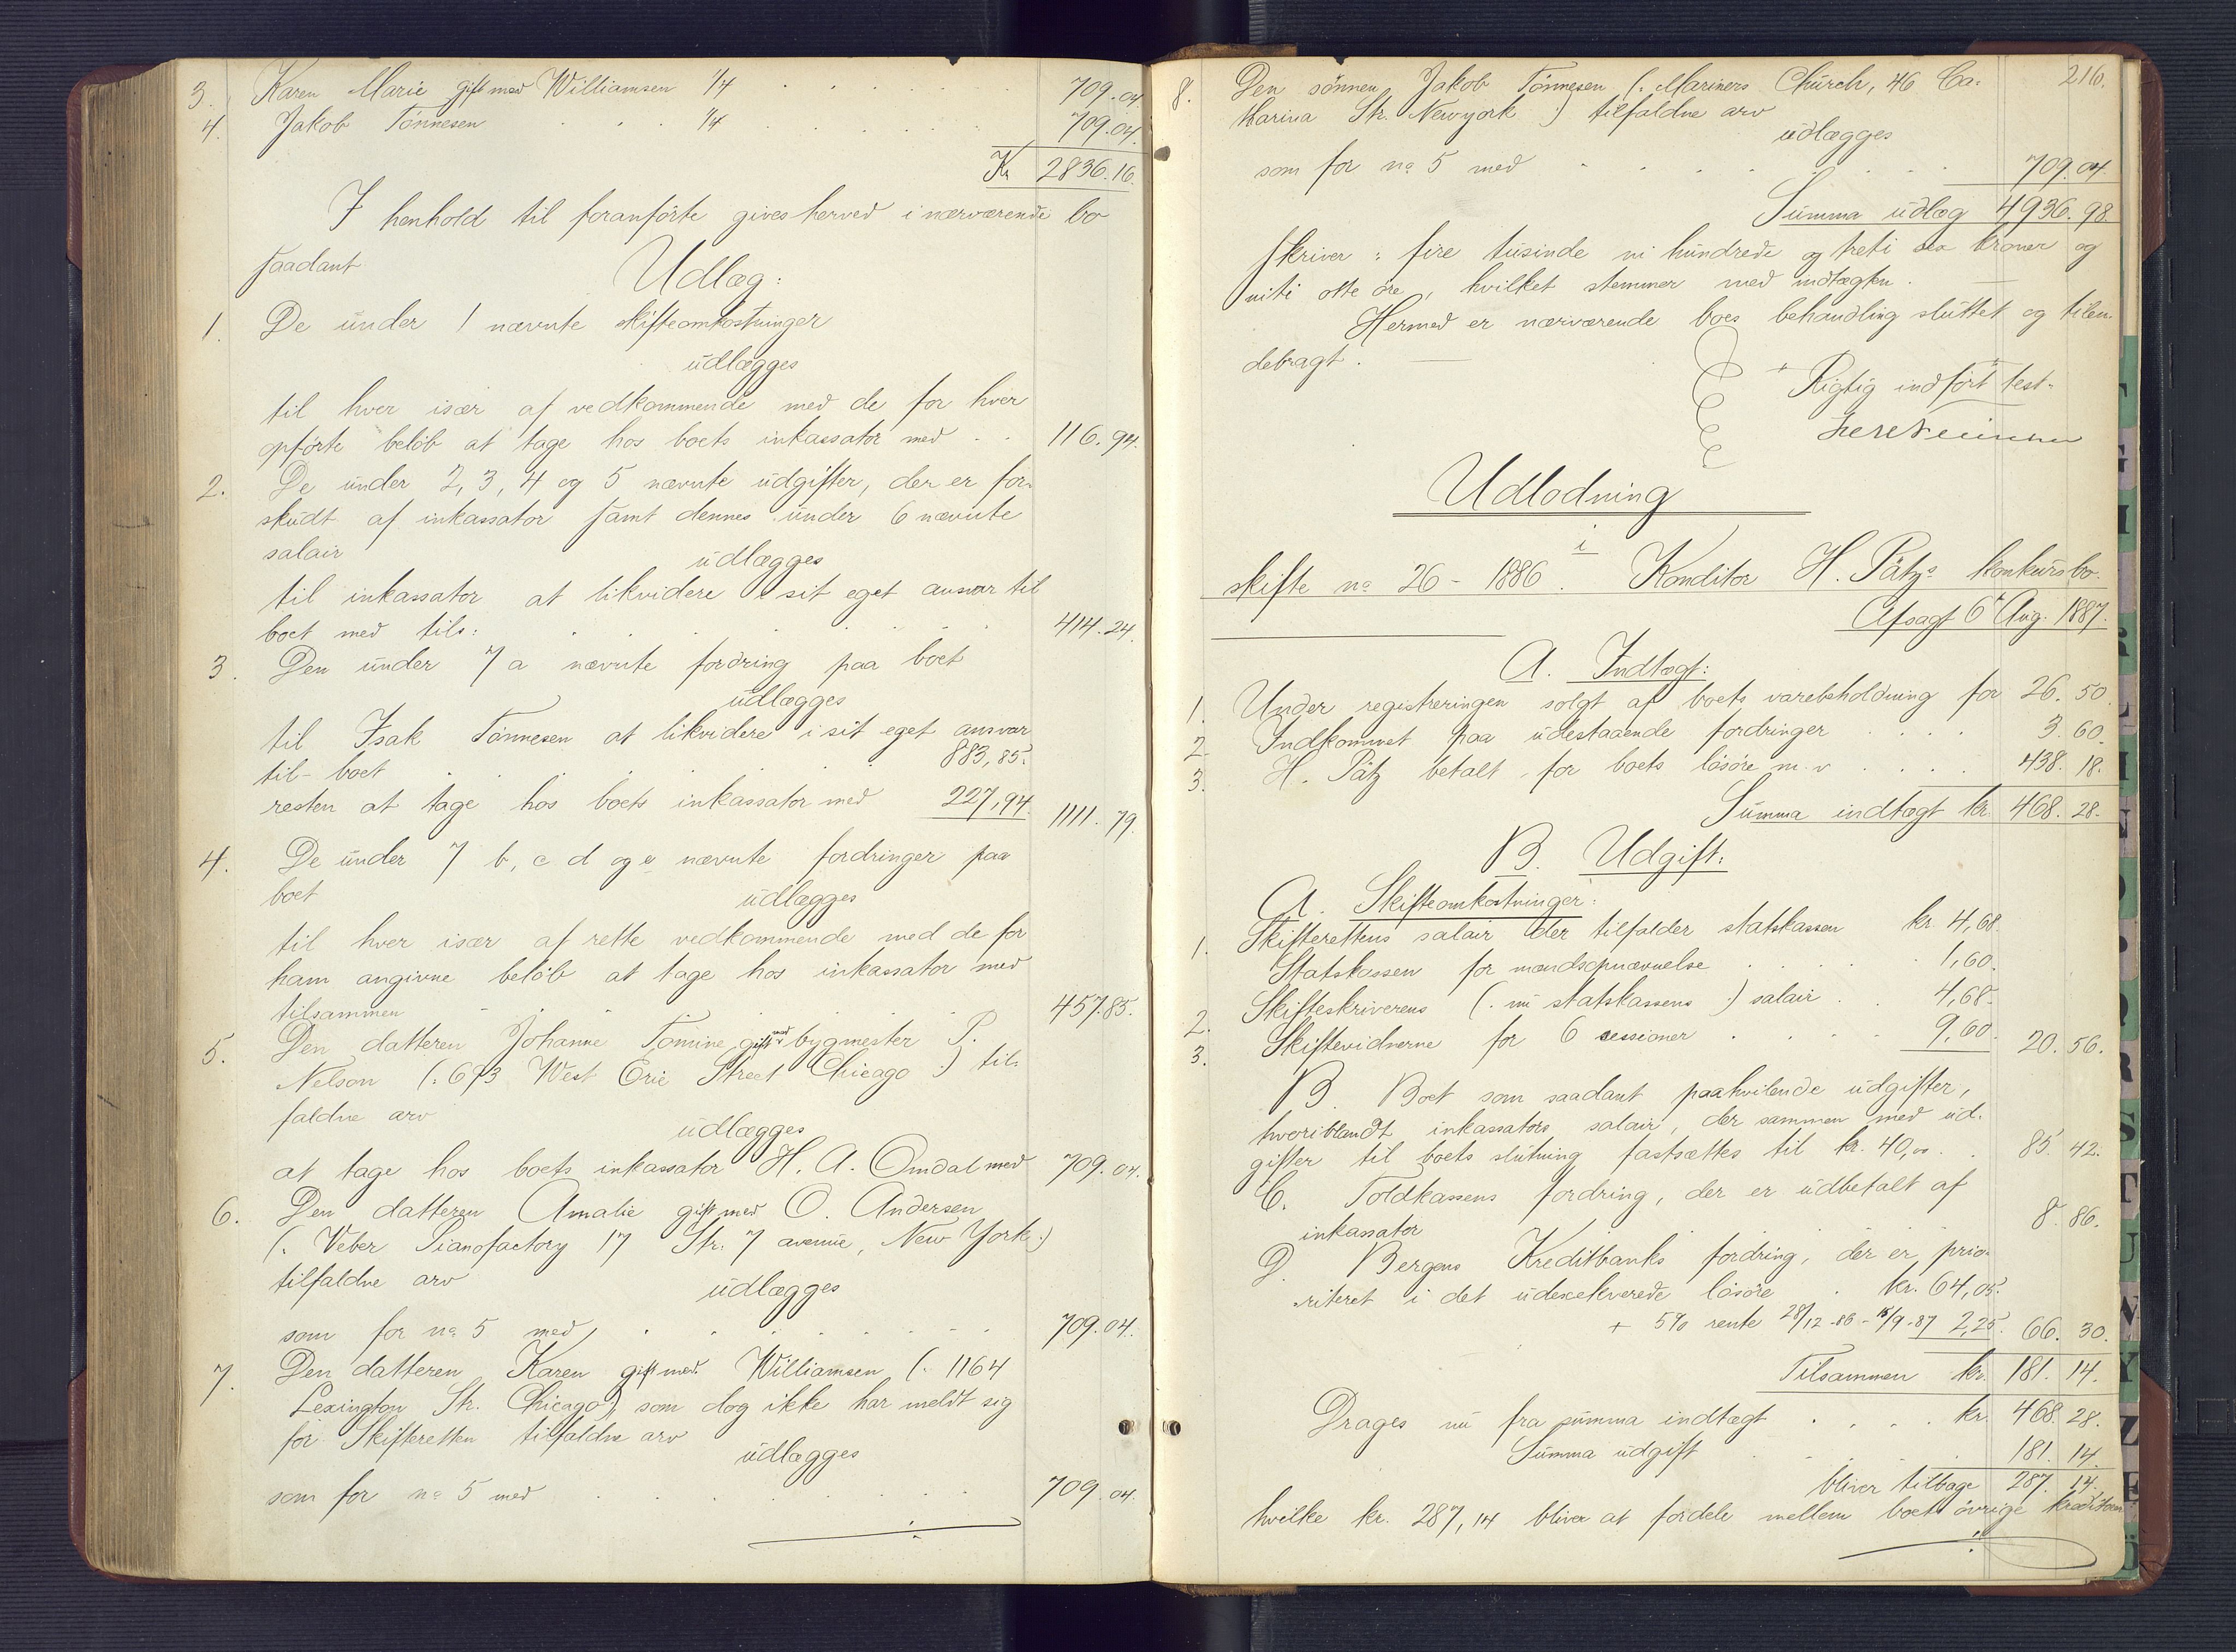 3. Karen Marie gift med Williamsen 1/4 709.04.
4. Jakob Tönnesen 1/4 709.04.
Kr 2836.16.
I henhold til foranförte gives herved i nærværende bo
saadant
Udlæg:
1. De under 1 nævnte skifteomkostninger
udlægges
til hver især af vedkommende med de for hver
opförte belöb at tage hos boets inkassator med 116.94.
2. De under 2, 3, 4 og 5 nævnte udgifter, der er for-
skudt af inkassator samt dennes under 6 nævnte
salair
udlægges
til inkassator at likvidere i sit eget ansvar til
boet med tils: 414.24.
3. Den under 7 a nævnte fordring paa boet
udlægges
til Isak Tönnesen at likvidere i sit eget ansvar
til boet 883,85.
resten at tage hos boets inkassator med 227,94. 1111.79.
4. De under 7 b, c d og e nævnte fordringer paa
boet
udlægges
til hver især af rette vedkommende med de for
ham angivne belöb at tage hos inkassator med
tilsammen 457.85.
5. Den datteren Johanne Tomine gift med bygmester P.
Nelson (: 673 West Erie Street Chicago :) til-
faldne arv
udlægges
at tage hos boets inkassator H. A. Omdal med 709.04.
6. Den datteren Amalie gift med O. Andersen
(: Veber Pianofactory 17 Str. 7 avenue, New York :)
tilfaldne arv
udlægges
som for no 5 med 709.04.
7. Den datteren Karen gift med Williamsen (: 1164
Lexington Str. Chicago :), som dog ikke har meldt sig
for Skifteretten tilfaldne arv
udlægges
som for no 5 med 709.04.
216.
8. Den sönnen Jakob Tönnesen (: Mariners Church, 46 Ca-
tharina Str. Newyork :) tilfaldne arv
udlægges
som for no 5 med 709.04.
Summa udlæg 4936.98.
skriver: fire tusinde ni hundrede og treti sex kroner og
niti otte öre, hvilket stemmer med indtægten.
Hermed er nærværende boes behandling sluttet og tilen-
debragt.
Rigtig indfört test-
Udlodning
i
skifte no 26 - 1886. Konditor H. Pätz's konkursbo.
Afsagt 6te Aug. 1887.
A. Indtægt:
1. Under registreringen solgt af boets varebeholdning for 26.50.
2. Indkommet paa udestaaende fordringer 3.60.
3. H. Pätz betalt for boets lösöre m. v 438.18.
Summa indtægt kr. 468.28.
B. Udgift:
A. Skifteomkostninger:
1. Skifterettens salair der tilfalder statskassen kr. 4,68.
Statskassen for mandsopnævnelse 1,60.
2. Skifteskriverens (: nu statskassens :) salair 4,68.
3. Skiftevidnerne for 6 sessioner 9,60. 20.56.
B. Boet som saadant paahvilende udgifter,
hvoriblandt inkassators salair, der sammen med ud-
gifter til boets slutning fastsættes til kr. 40,00. 85.42.
C. Toldkassens fordring, der er udbetalt af
inkassator 8.86.
D. Bergens Kreditbanks fordring, der er prio-
riteret i det udexekverede lösöre kr. 64,05.
+ 5% rente 28/12-86 - 15/9-87 2,25. 66.30.
Tilsammen kr. 181.14.
Drages nu fra summa indtægt kr. 468.28.
Summa udgift 181.14.
bliver tilbage 287.14.
hvilke kr. 287,14 bliver at fordele mellem boets övrige kreditorer